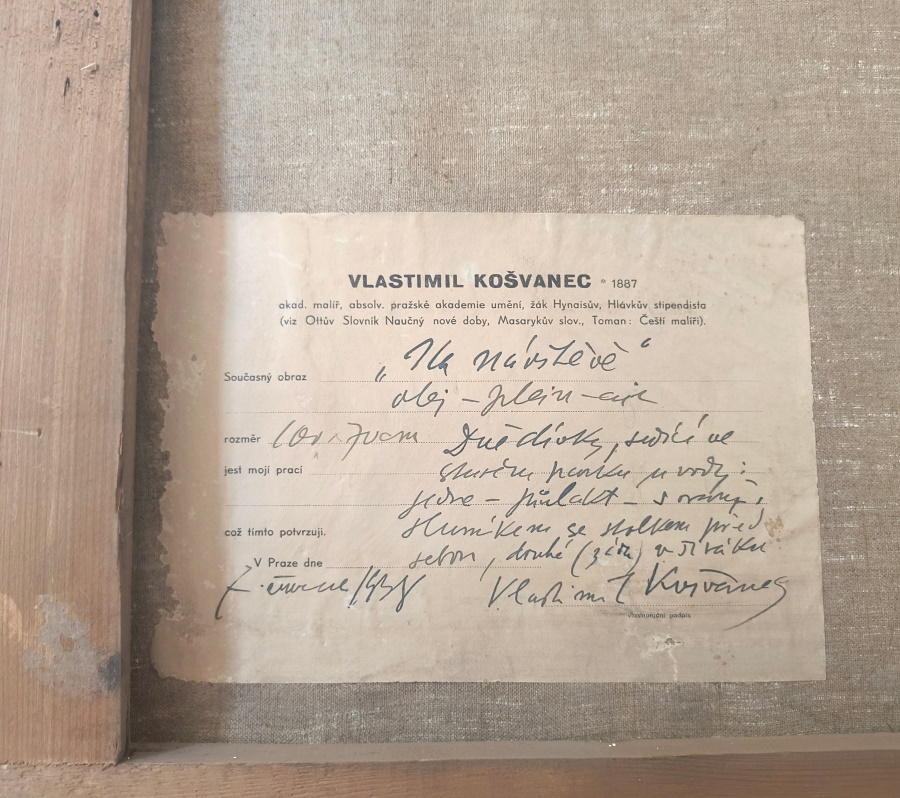 VLASTIMIL KOŠVANEC * 1887
akad. malíř, absolv. pražské akademie umění, žák Hynaisův, Hlávkův stipendista
(viz Ottův Slovník Naučný nové doby, Masarykův slov., Toman: Čeští malíři).
Současný obraz „Na návštěvě“
olej – plein-air
rozměr Dvě dívky, sedící ve
jest mojí prací starém parku u vody:
jedna – půlakt – s
což tímto potvrzuji. slunníkem se stolkem před
V Praze dne sebou, druhá v
7. července 1938 Vlastimil Košvanec
vlastnoruční podpis